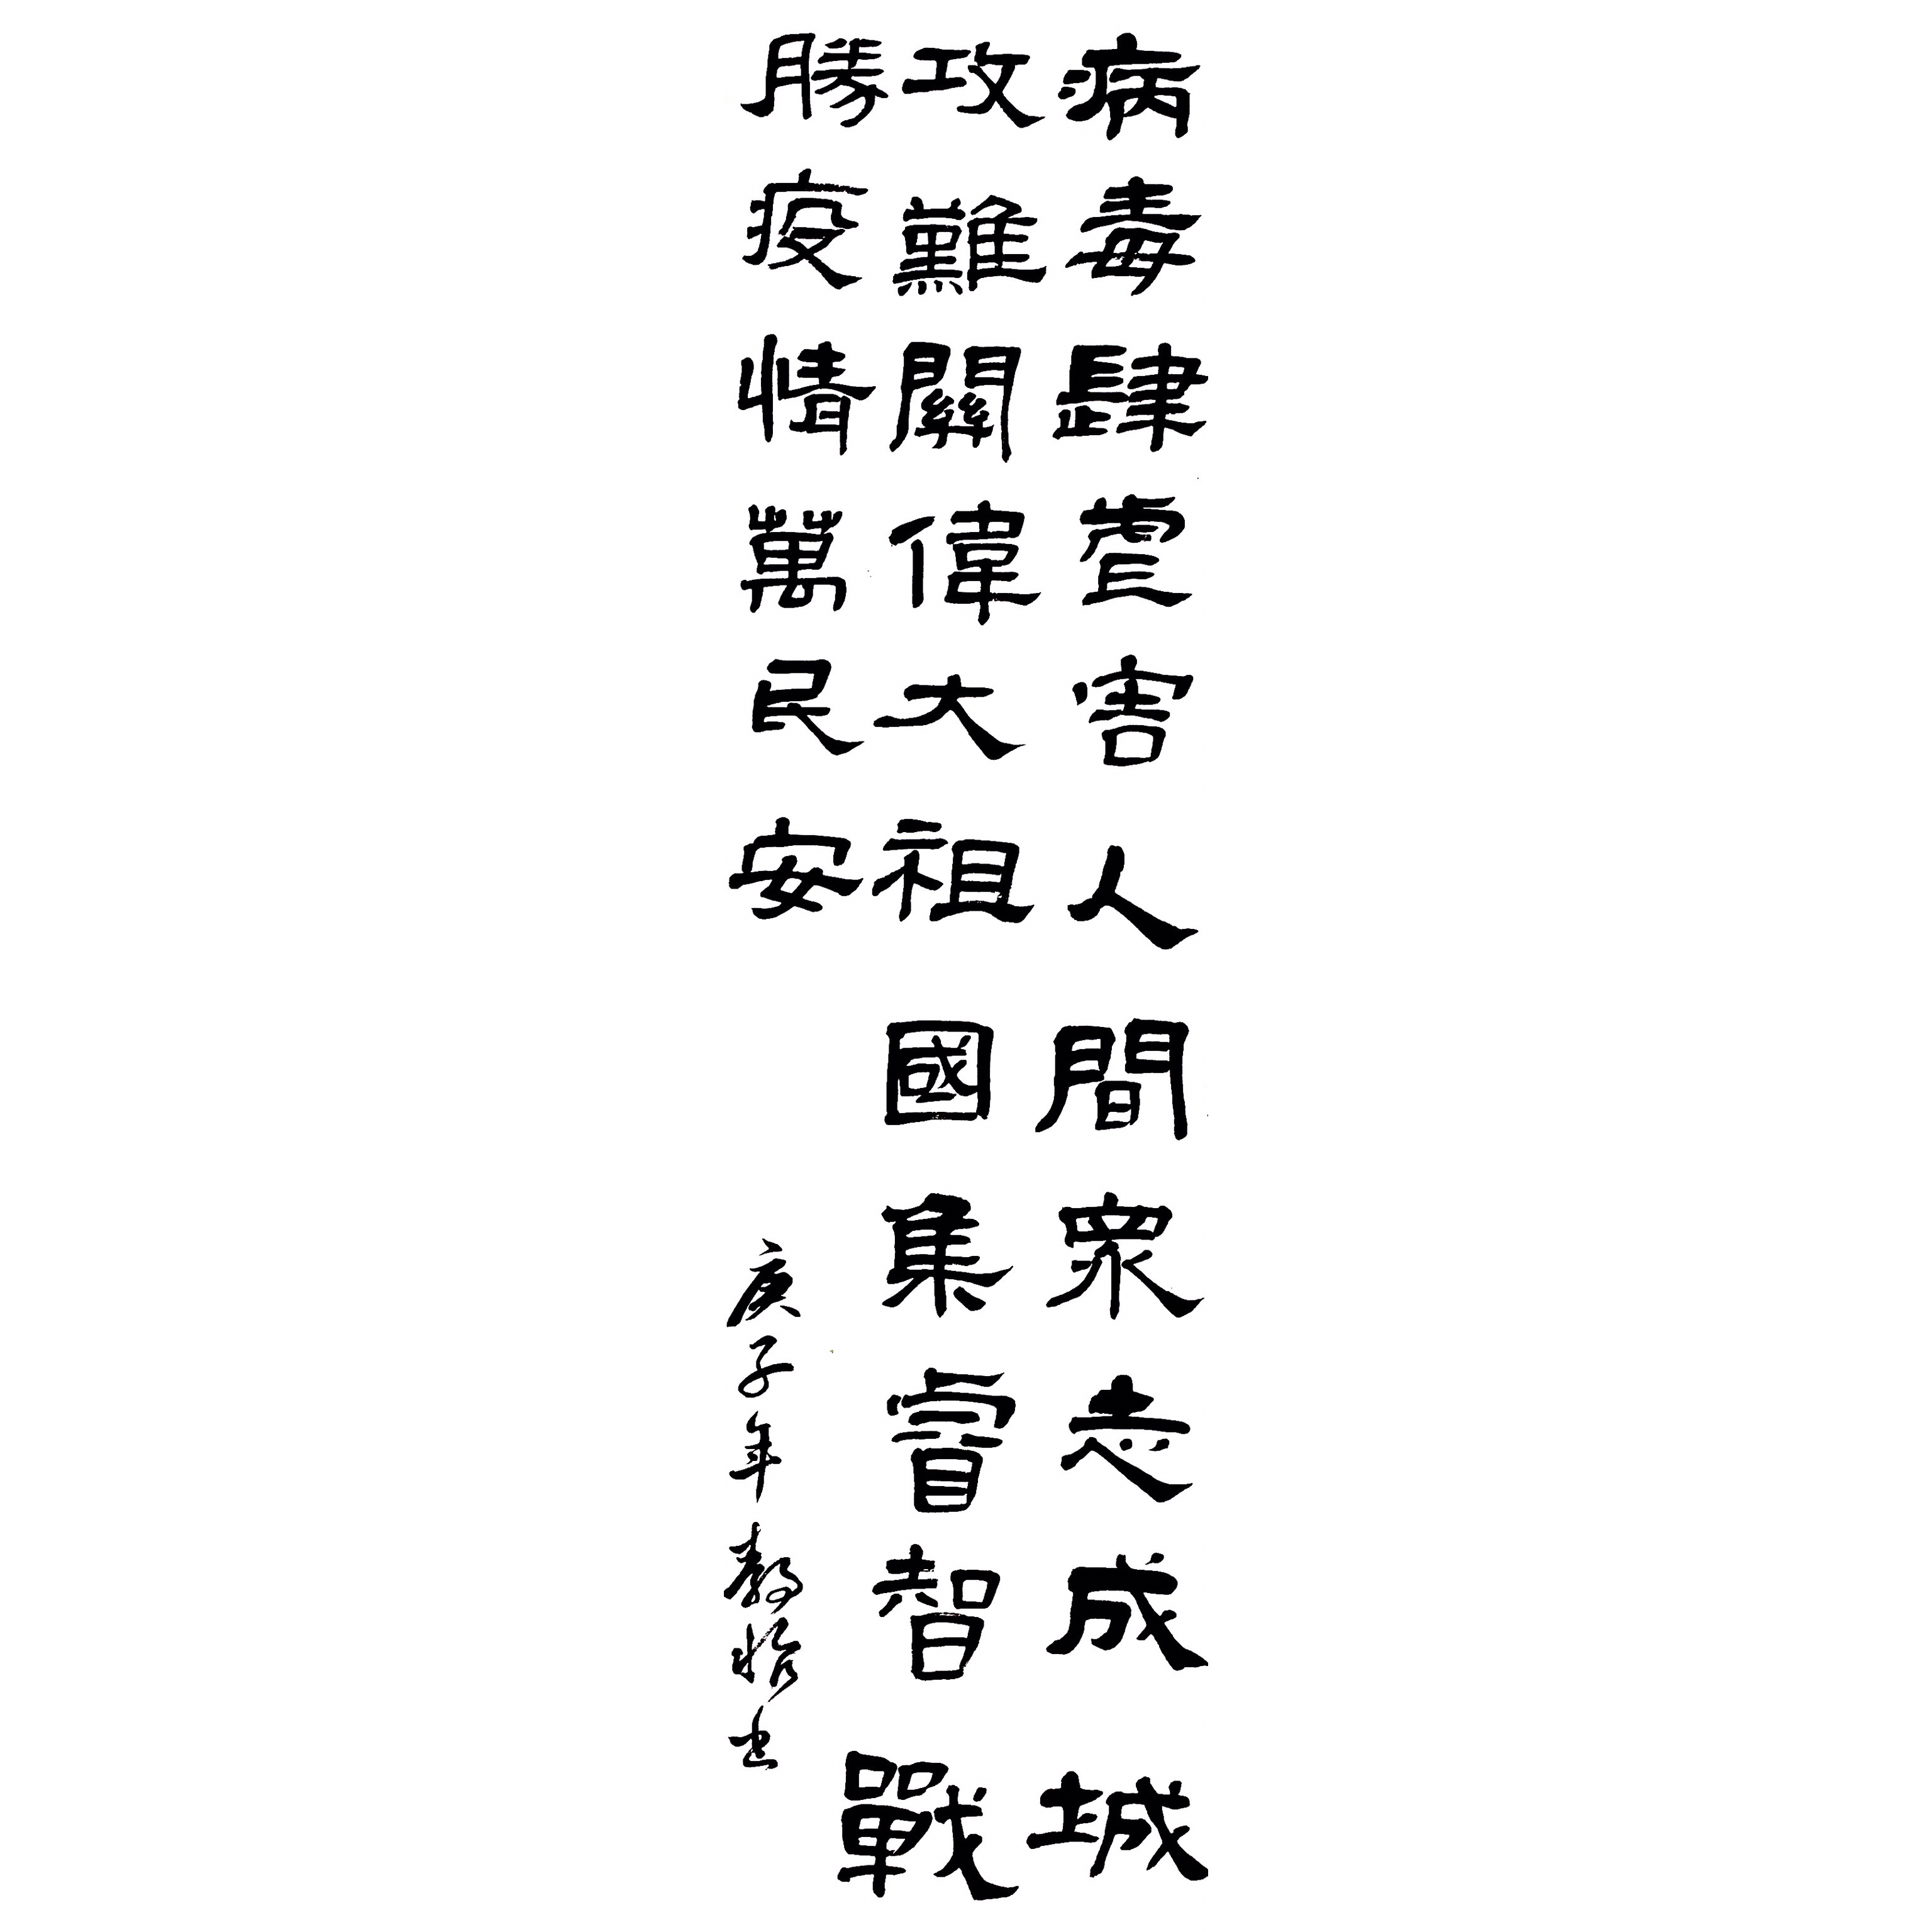 病毒肆虐害人間衆志成城
攻難關偉大祖國集睿智戰
勝疫情萬民安
庚子年
書